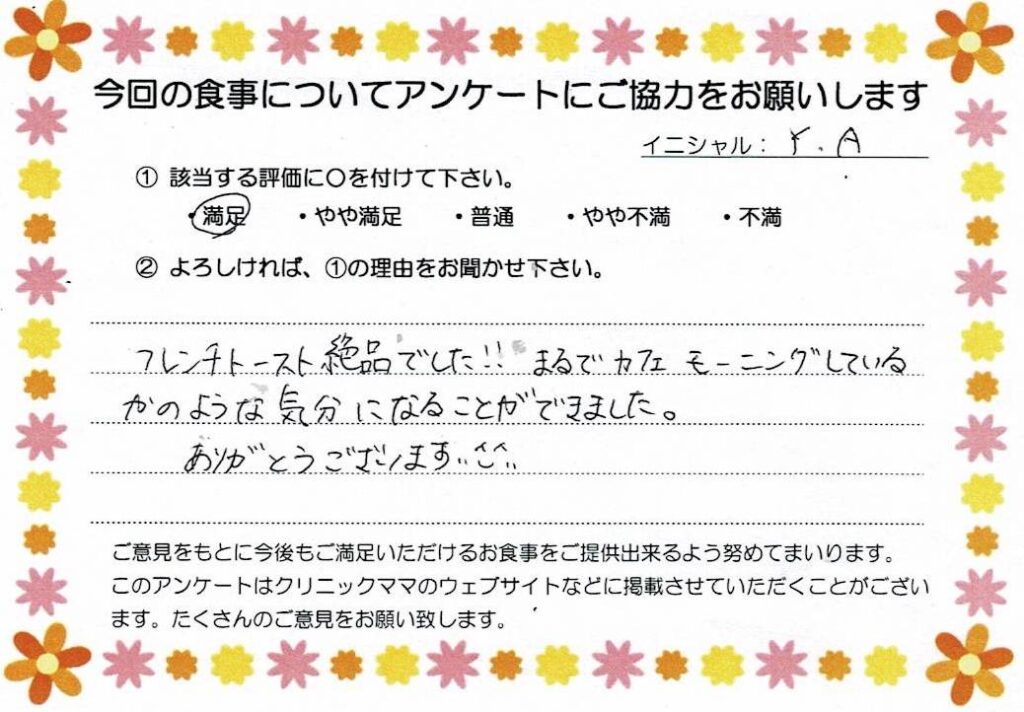 今回の食事についてアンケートにご協力をお願いします
イニシャル： Y. A
① 該当する評価に○を付けて下さい。
・満足 ・やや満足 ・普通 ・やや不満 ・不満
② よろしければ、①の理由をお聞かせ下さい。
フレンチトースト絶品でした!! まるでカフェモーニングしている
かのような気分になることができました。
ありがとうございます
ご意見をもとに今後もご満足いただけるお食事をご提供出来るよう努めてまいります。
このアンケートはクリニックママのウェブサイトなどに掲載させていただくことがござい
ます。たくさんのご意見をお願い致します。